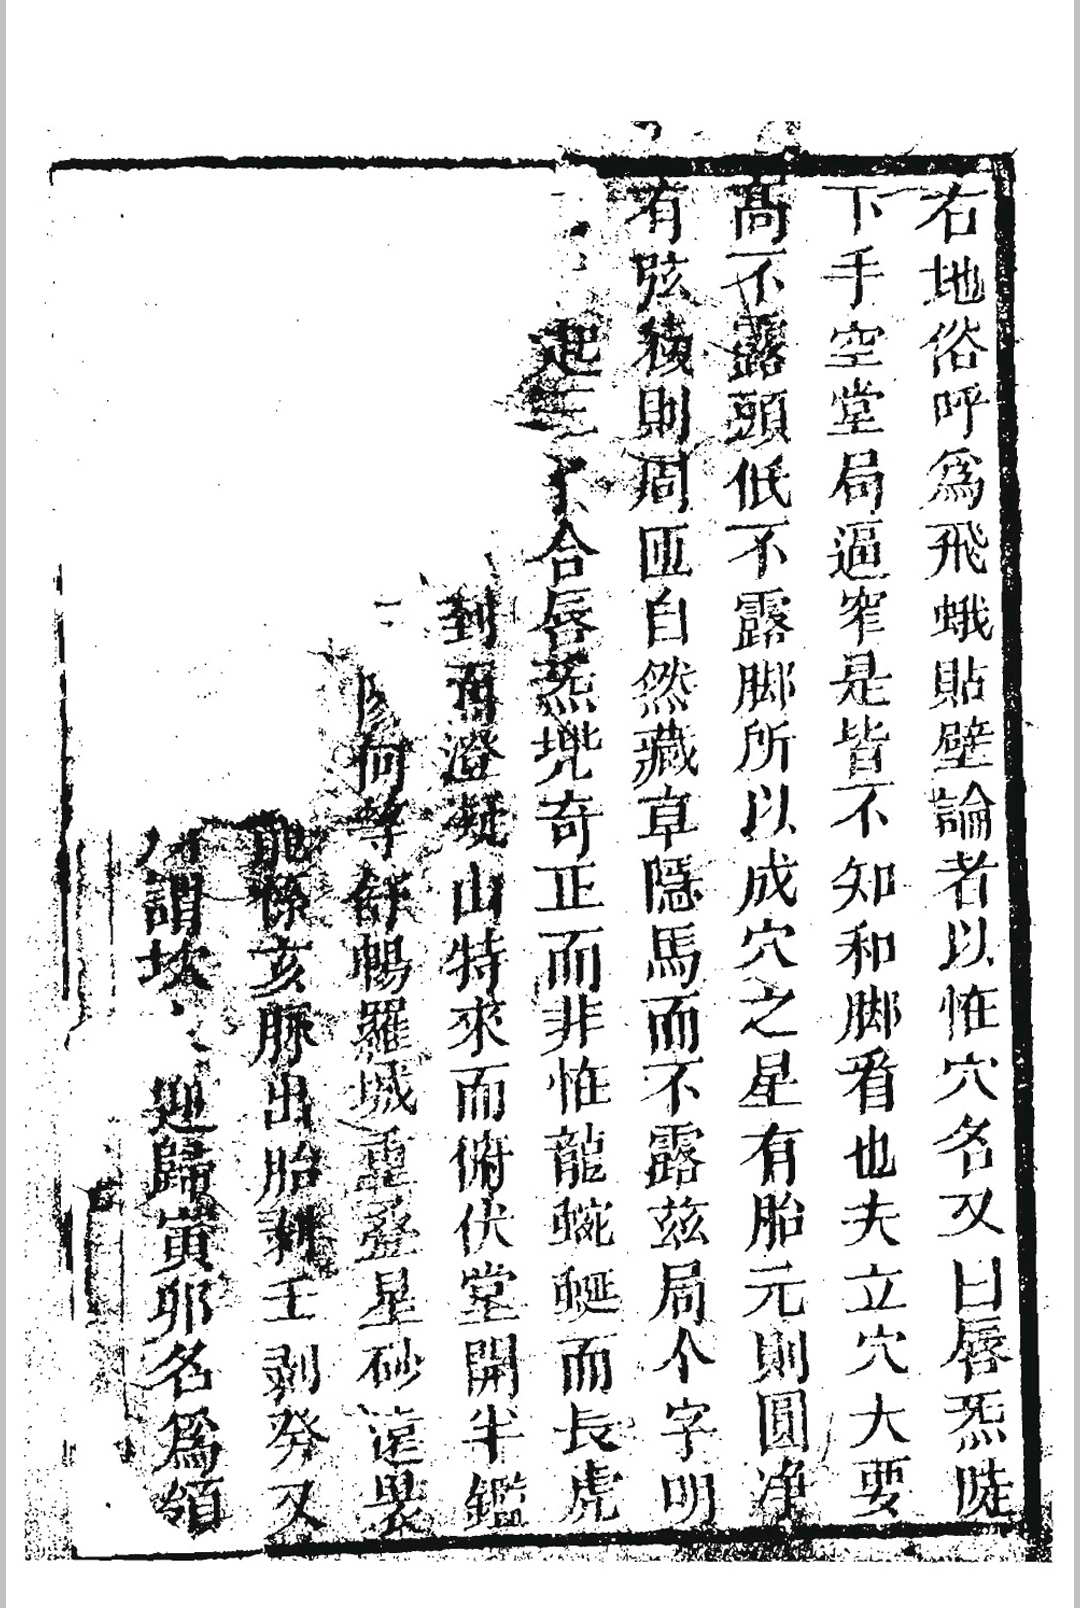 右地俗呼爲飛蛾貼壁論者以恠穴名又曰唇炁陡
下手空堂局逼窄是皆不知和脚看也夫立穴大要
高不露頭低不露脚所以成穴之星有胎元則圓净
有弦稜則周匝自然藏草隱馬而不露兹局个字明
起三合唇炁兠奇正而非恠龍蜿蜒而長虎
到澄凝山特來而俯伏堂開半鑑
何等舒暢羅城重叠星砂遠褁
龍係亥脉出胎壬剥癸又
謂坎迎歸寅卯名爲領